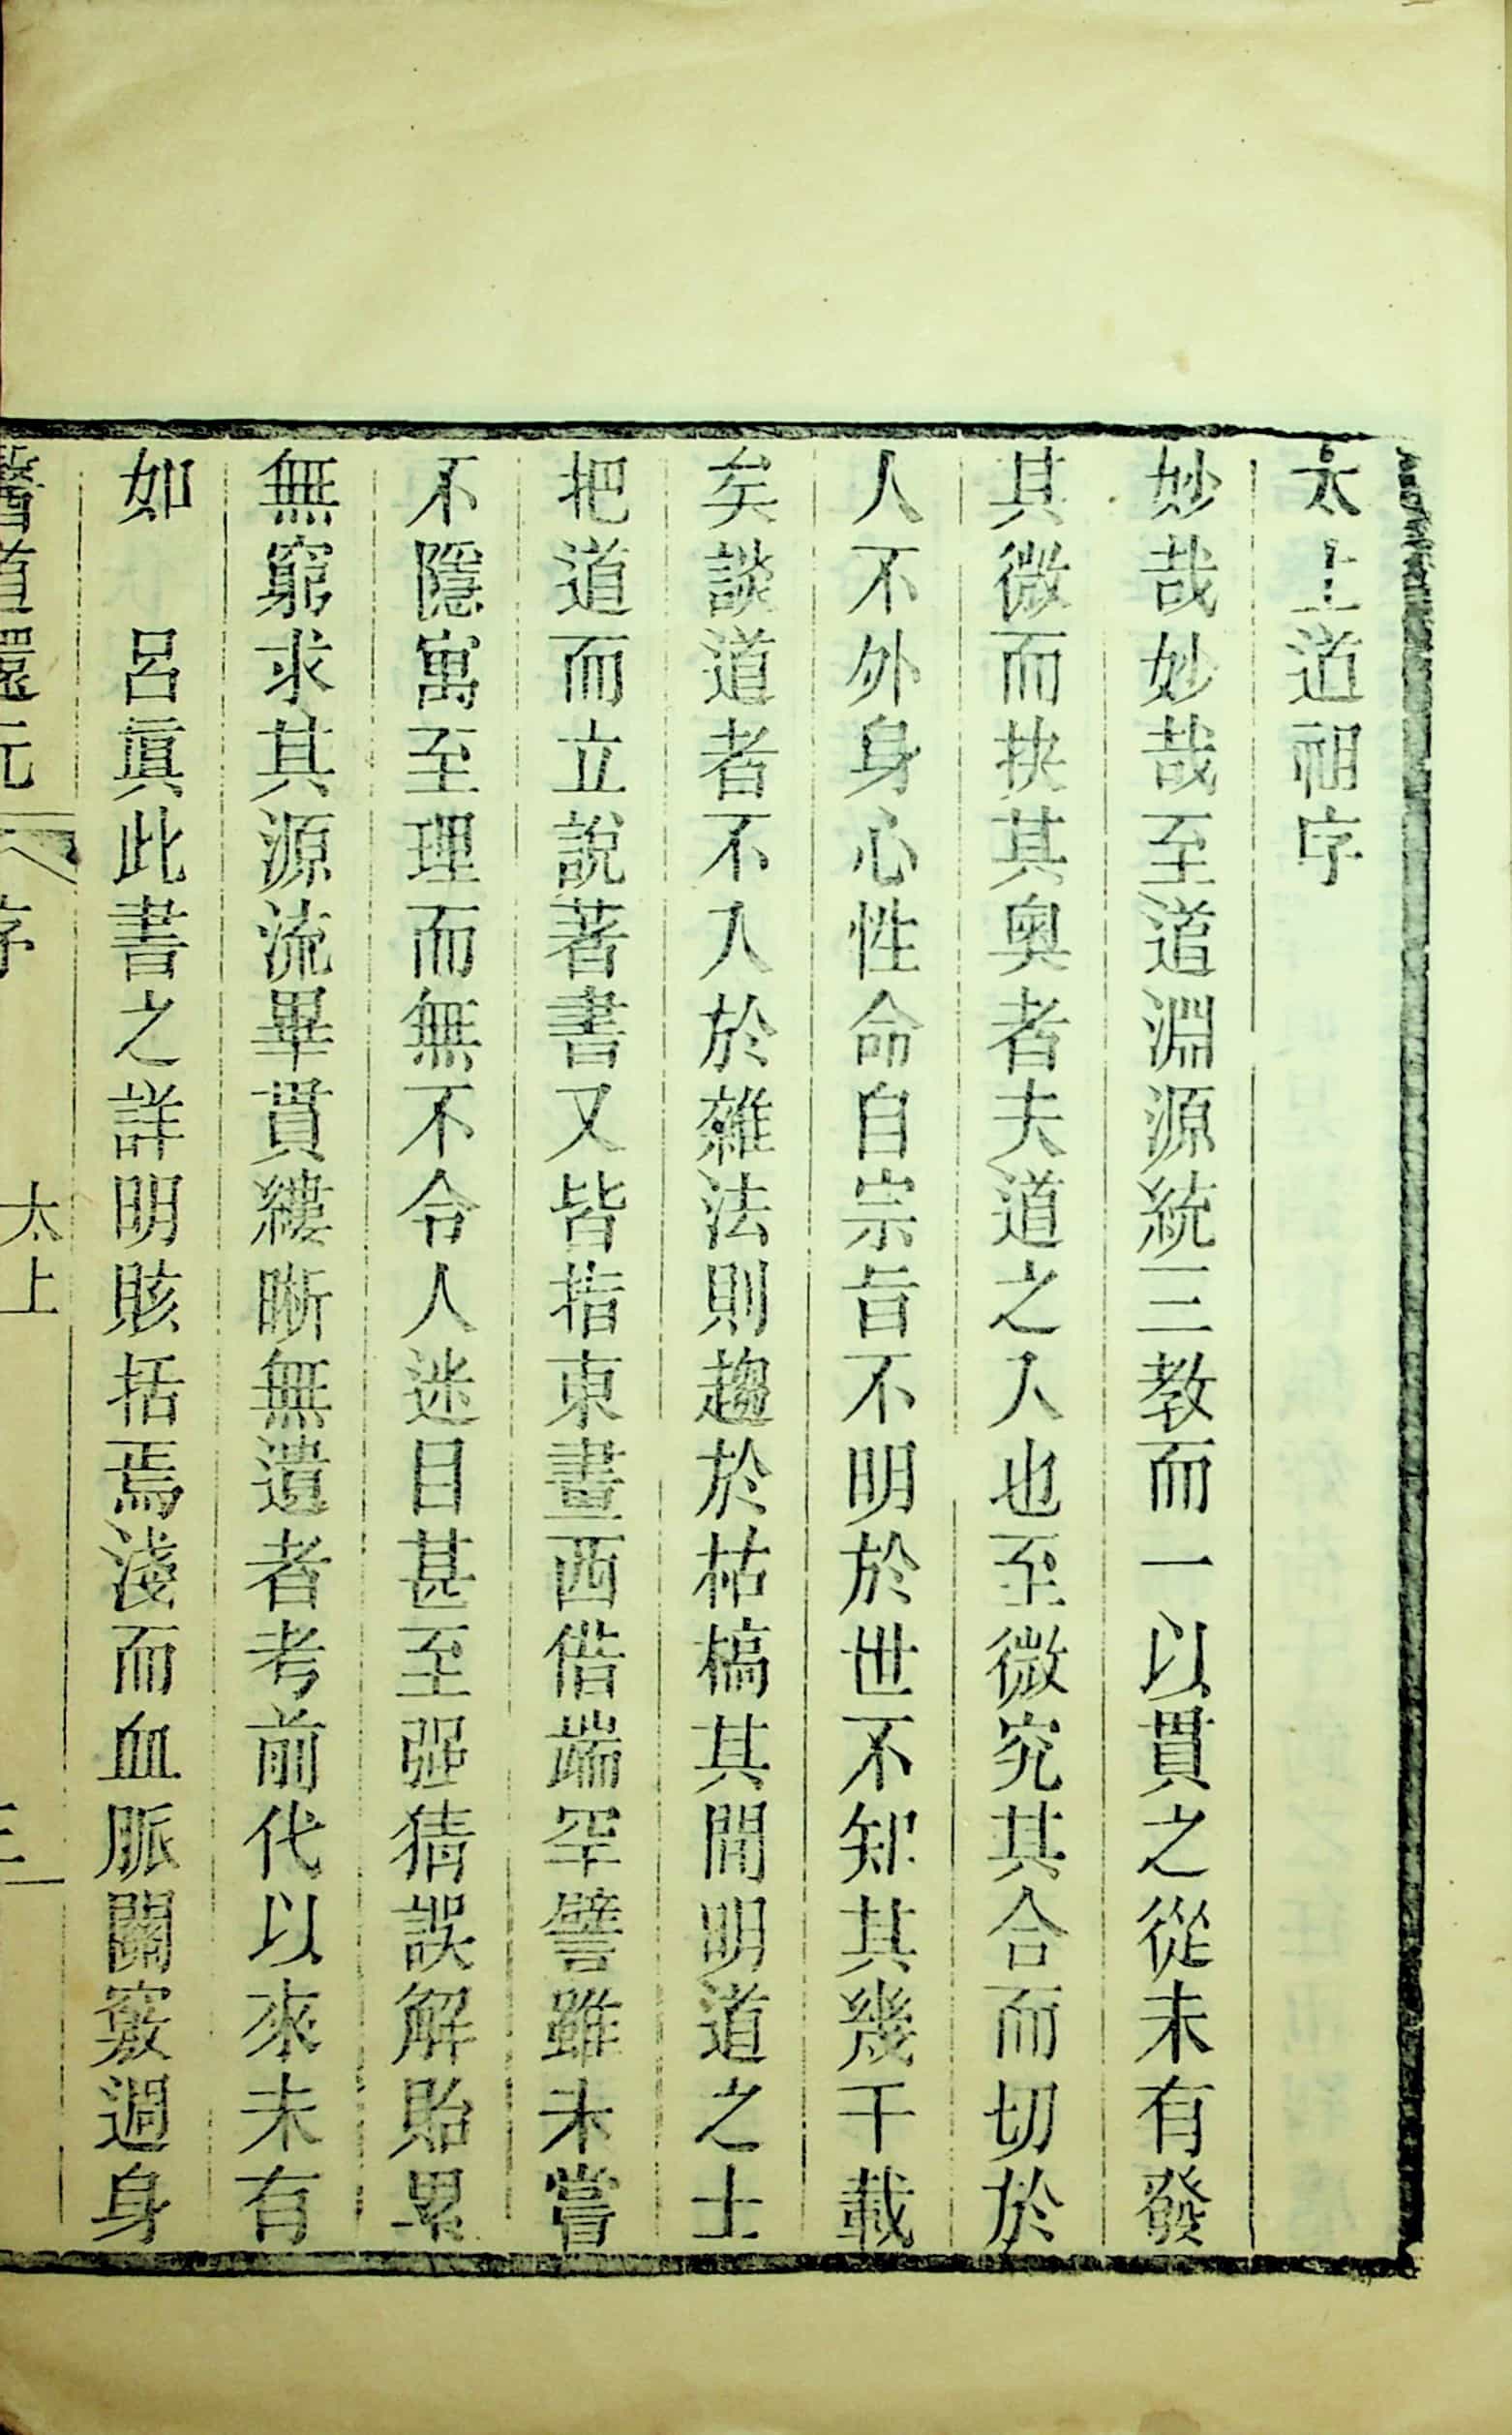 太上道祖序
妙哉妙哉至道淵源統三教而一以貫之從未有發
其微而抉其奧者夫道之人也至微究其合而切於
人不外身心性命自宗旨不明於世不知其幾千載
矣談道者不入於雜法則趨於枯槁其間明道之士
把道而立說著書又皆指東畫西借端罕譬雖未嘗
不隱寓至理而無不令人迷目甚至强猜誤解貽累
無窮求其源流畢貫縷晰無遺者考前代以來未有
如　呂眞此書之詳明賅括焉淺而血脈關竅週身
醫道還元　序　太上　三